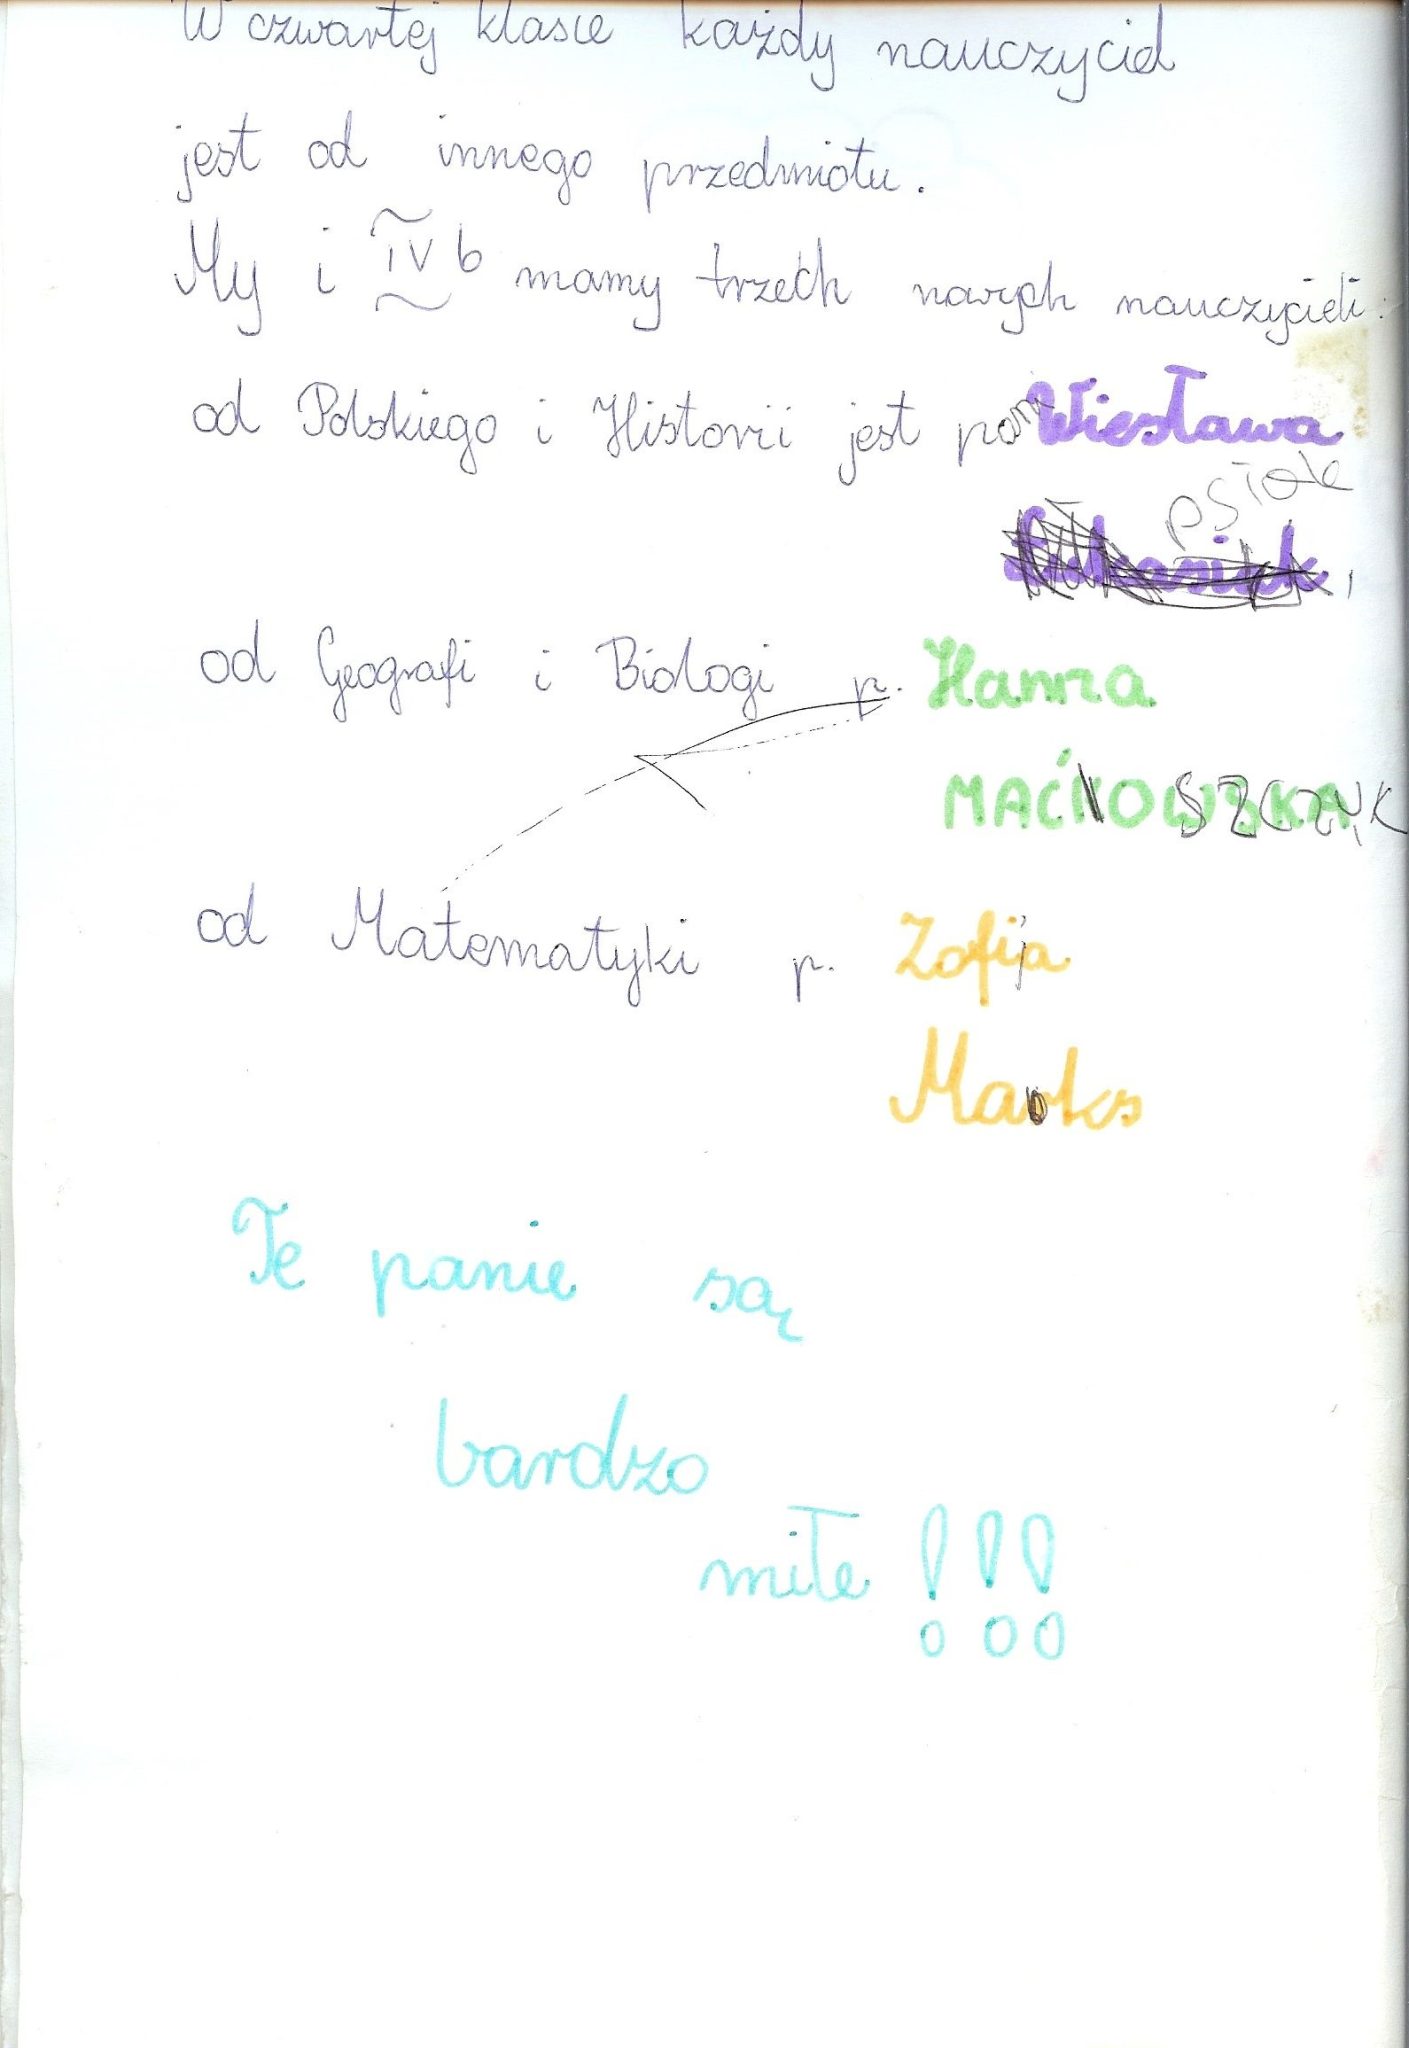 W czwartej klasie każdy nauczyciel
jest od innego przedmiotu.
My i IV b mamy trzech nowych nauczycieli:
od Polskiego i Historii jest pani Wiesława
psiak
od Geografi i Biologi p. Hanna
MAĆKOWSKA SZCZYK
od Matematyki p. Zofija
Marks
Te panie są
bardzo
miłe !!!